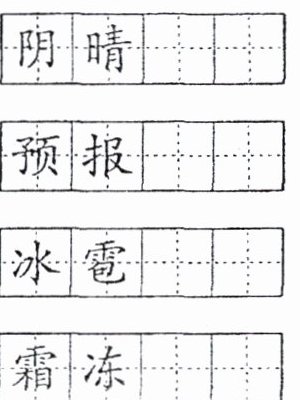 阴晴
预报
冰雹
霜冻